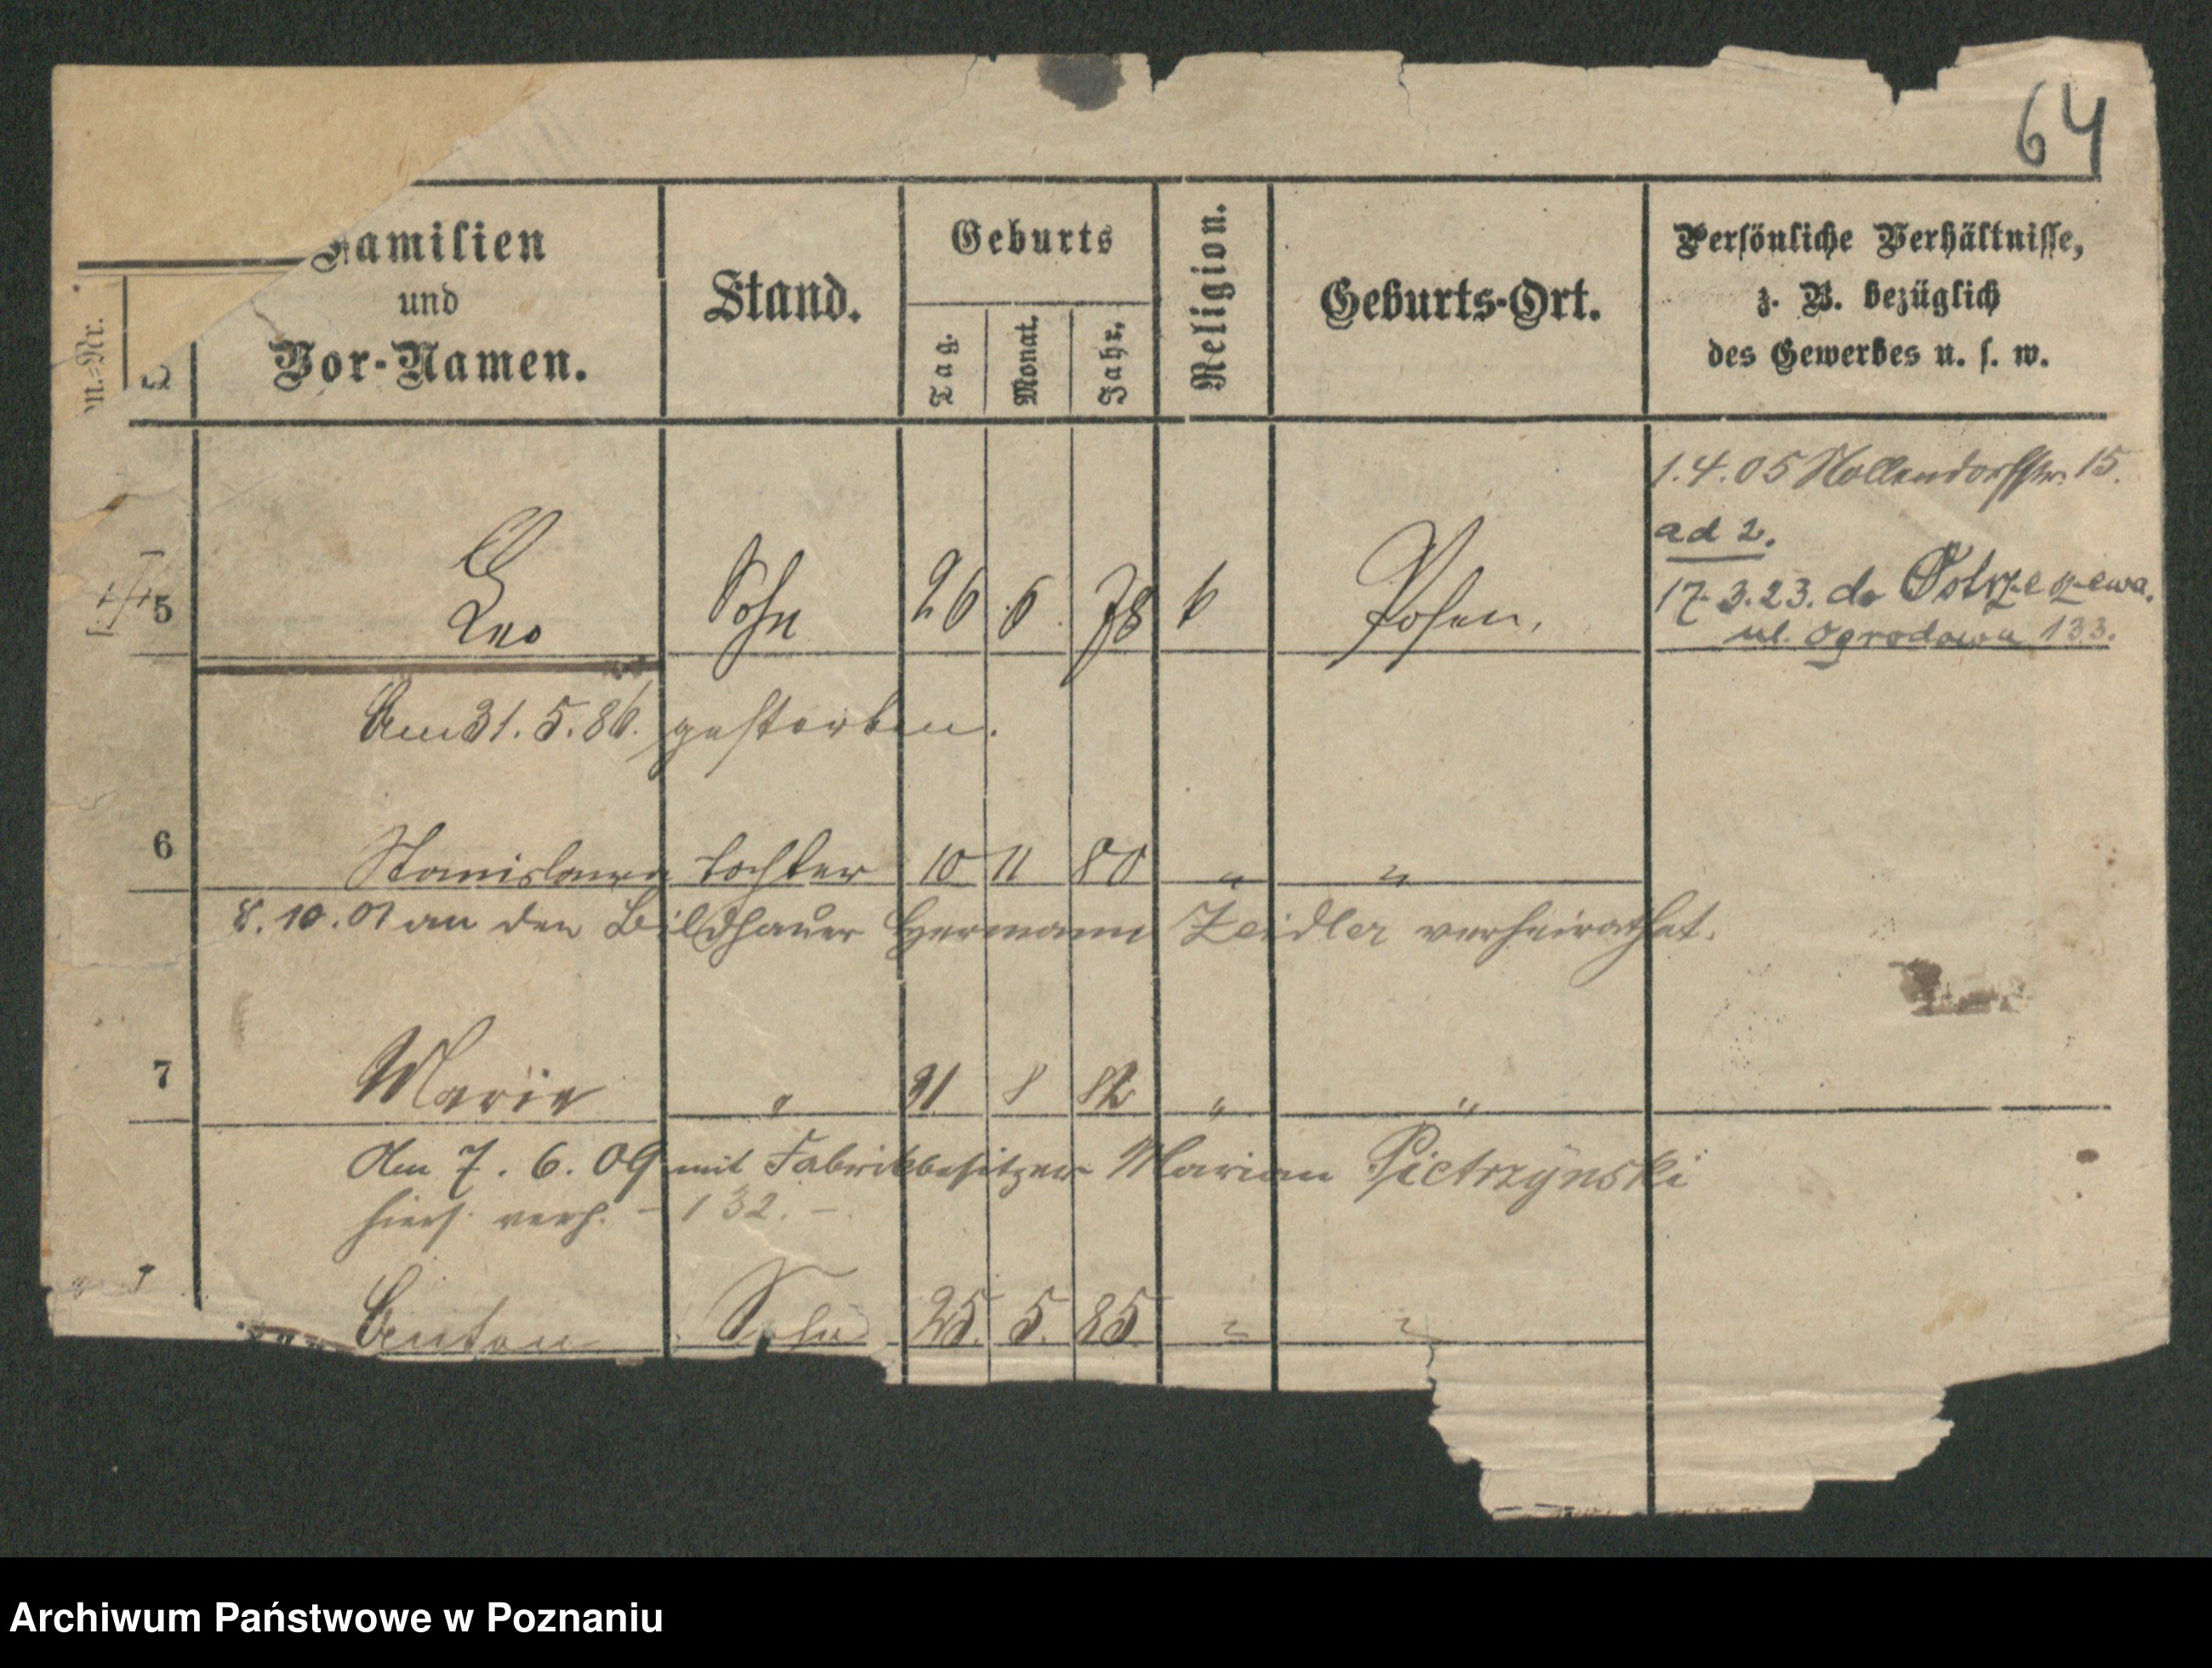 64
Familien
und
Vor-Namen.
Stand.
Geburts
Tag.
Monat.
Jahr.
Religion.
Geburts-Ort.
Persönliche Verhältnisse,
z. B. bezüglich
des Gewerbes u. s. w.
1.4.05 Nollendorfstr. 15.
ad 2.
17.3.23. do Ostrzeszewa.
ul. Ogrodowa 133.
5 Leo Sohn 26 6. 78 k Posen.
Am 31.5.86. gestorben.
6 Stanislawa Tochter 10 11 80 " "
8.10.01 an den Bildhauer Hermann Zeidler verheirathet.
7 Marie " 31 8 82 " "
Am 7.6.09 mit Fabrikbesitzer Marian Pietrzynski
hiers. verh. - 132. -
Anton Sohn 25. 5. 85 " "
Archiwum Państwowe w Poznaniu